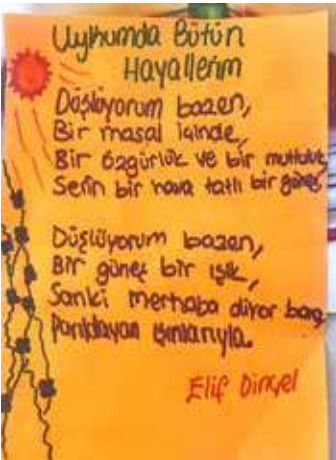 Uykumda Bütün
Hayallerim
Düşlüyorum bazen,
Bir masal içinde,
Bir özgürlük ve bir mutluluk
Serin bir hava tatlı bir güneş,
Düşlüyorum bazen,
Bir güneş bir ışık,
Sanki merhaba diyor bana
Parıldayan ışınlarıyla.
Elif Dinçel